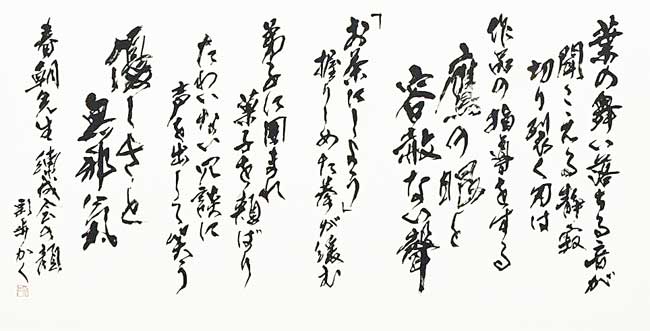 葉の舞い落ちる音が
聞こえる静寂
切り裂く刃は
作品の指導をする
鷹の眼と
容赦ない聲
「お茶にしよう」
握りしめた拳が緩む
弟子に囲まれ
菓子を頬ばり
たわいない冗談に
声を出して笑う
優しさと
無邪気
春朝先生 錬成会の顔
かく